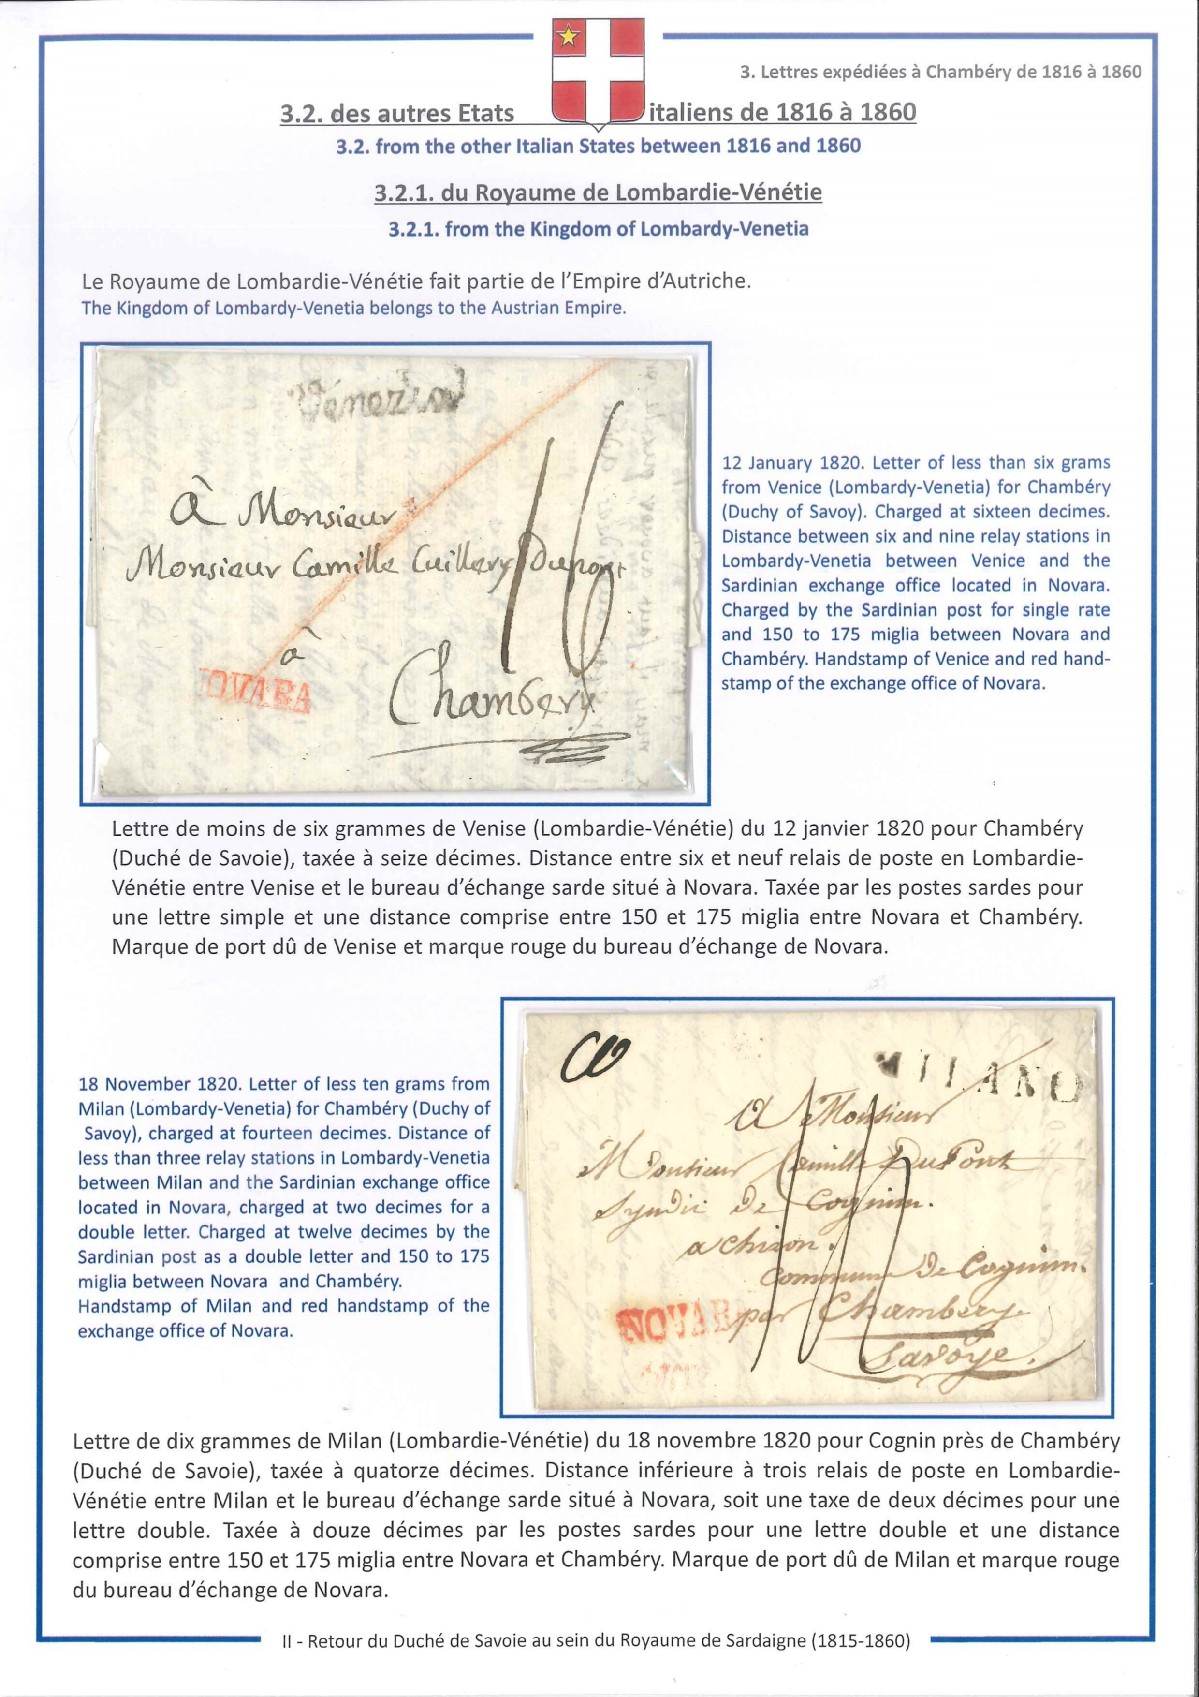 3. Lettres expédiées à Chambéry de 1816 à 1860
3.2. des autres Etats italiens de 1816 à 1860
3.2. from the other Italian States between 1816 and 1860
3.2.1. du Royaume de Lombardie-Vénétie
3.2.1. from the Kingdom of Lombardy-Venetia
Le Royaume de Lombardie-Vénétie fait partie de l'Empire d'Autriche.
The Kingdom of Lombardy-Venetia belongs to the Austrian Empire.
Venezia
16
à Monsieur
Monsieur Camille Cuillery Dupont
à
Chambery
OVARA
12 January 1820. Letter of less than six grams
from Venice (Lombardy-Venetia) for Chambéry
(Duchy of Savoy). Charged at sixteen decimes.
Distance between six and nine relay stations in
Lombardy-Venetia between Venice and the
Sardinian exchange office located in Novara.
Charged by the Sardinian post for single rate
and 150 to 175 miglia between Novara and
Chambéry. Handstamp of Venice and red hand-
stamp of the exchange office of Novara.
Lettre de moins de six grammes de Venise (Lombardie-Vénétie) du 12 janvier 1820 pour Chambéry
(Duché de Savoie), taxée à seize décimes. Distance entre six et neuf relais de poste en Lombardie-
Vénétie entre Venise et le bureau d'échange sarde situé à Novara. Taxée par les postes sardes pour
une lettre simple et une distance comprise entre 150 et 175 miglia entre Novara et Chambéry.
Marque de port dû de Venise et marque rouge du bureau d'échange de Novara.
18 November 1820. Letter of less ten grams from
Milan (Lombardy-Venetia) for Chambéry (Duchy of
Savoy), charged at fourteen decimes. Distance of
less than three relay stations in Lombardy-Venetia
between Milan and the Sardinian exchange office
located in Novara, charged at two decimes for a
double letter. Charged at twelve decimes by the
Sardinian post as a double letter and 150 to 175
miglia between Novara and Chambéry.
Handstamp of Milan and red handstamp of the
exchange office of Novara.
A Monsieur
Monsieur Camille DuPont
Syndic De Cognin.
a chiron.
Commune De Cognin.
par Chambery
Savoye.
14
NOVARA
Lettre de dix grammes de Milan (Lombardie-Vénétie) du 18 novembre 1820 pour Cognin près de Chambéry
(Duché de Savoie), taxée à quatorze décimes. Distance inférieure à trois relais de poste en Lombardie-
Vénétie entre Milan et le bureau d'échange sarde situé à Novara, soit une taxe de deux décimes pour une
lettre double. Taxée à douze décimes par les postes sardes pour une lettre double et une distance
comprise entre 150 et 175 miglia entre Novara et Chambéry. Marque de port dû de Milan et marque rouge
du bureau d'échange de Novara.
II - Retour du Duché de Savoie au sein du Royaume de Sardaigne (1815-1860)